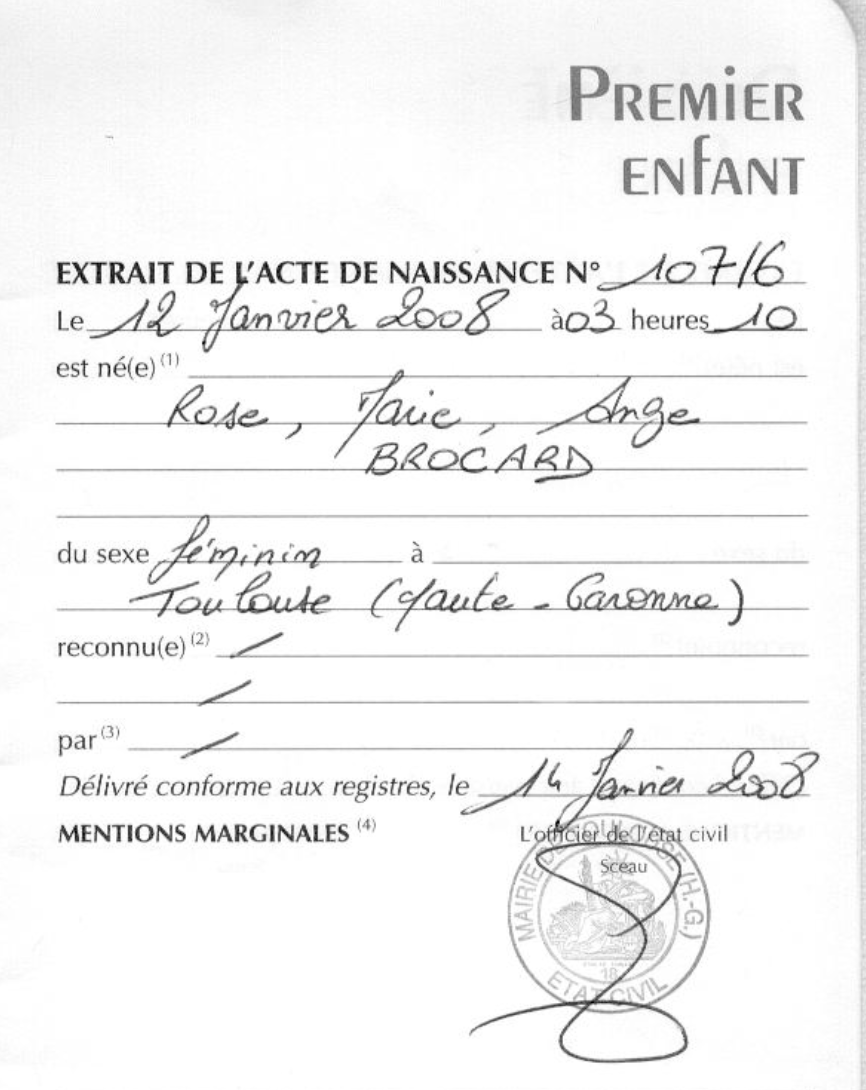 PREMIER
ENFANT
EXTRAIT DE L'ACTE DE NAISSANCE N° 107/6
Le 12 Janvier 2008 à 03 heures 10
est né(e) (1)
Rose, Marie, Ange
BROCARD
du sexe féminin à
Toulouse (Haute-Garonne)
reconnu(e) (2) /
/
par (3) /
Délivré conforme aux registres, le 14 Janvier 2008
MENTIONS MARGINALES (4) L'officier de l'état civil
Sceau
MAIRIE DE TOULOUSE (H.-G.)
18
ETAT CIVIL